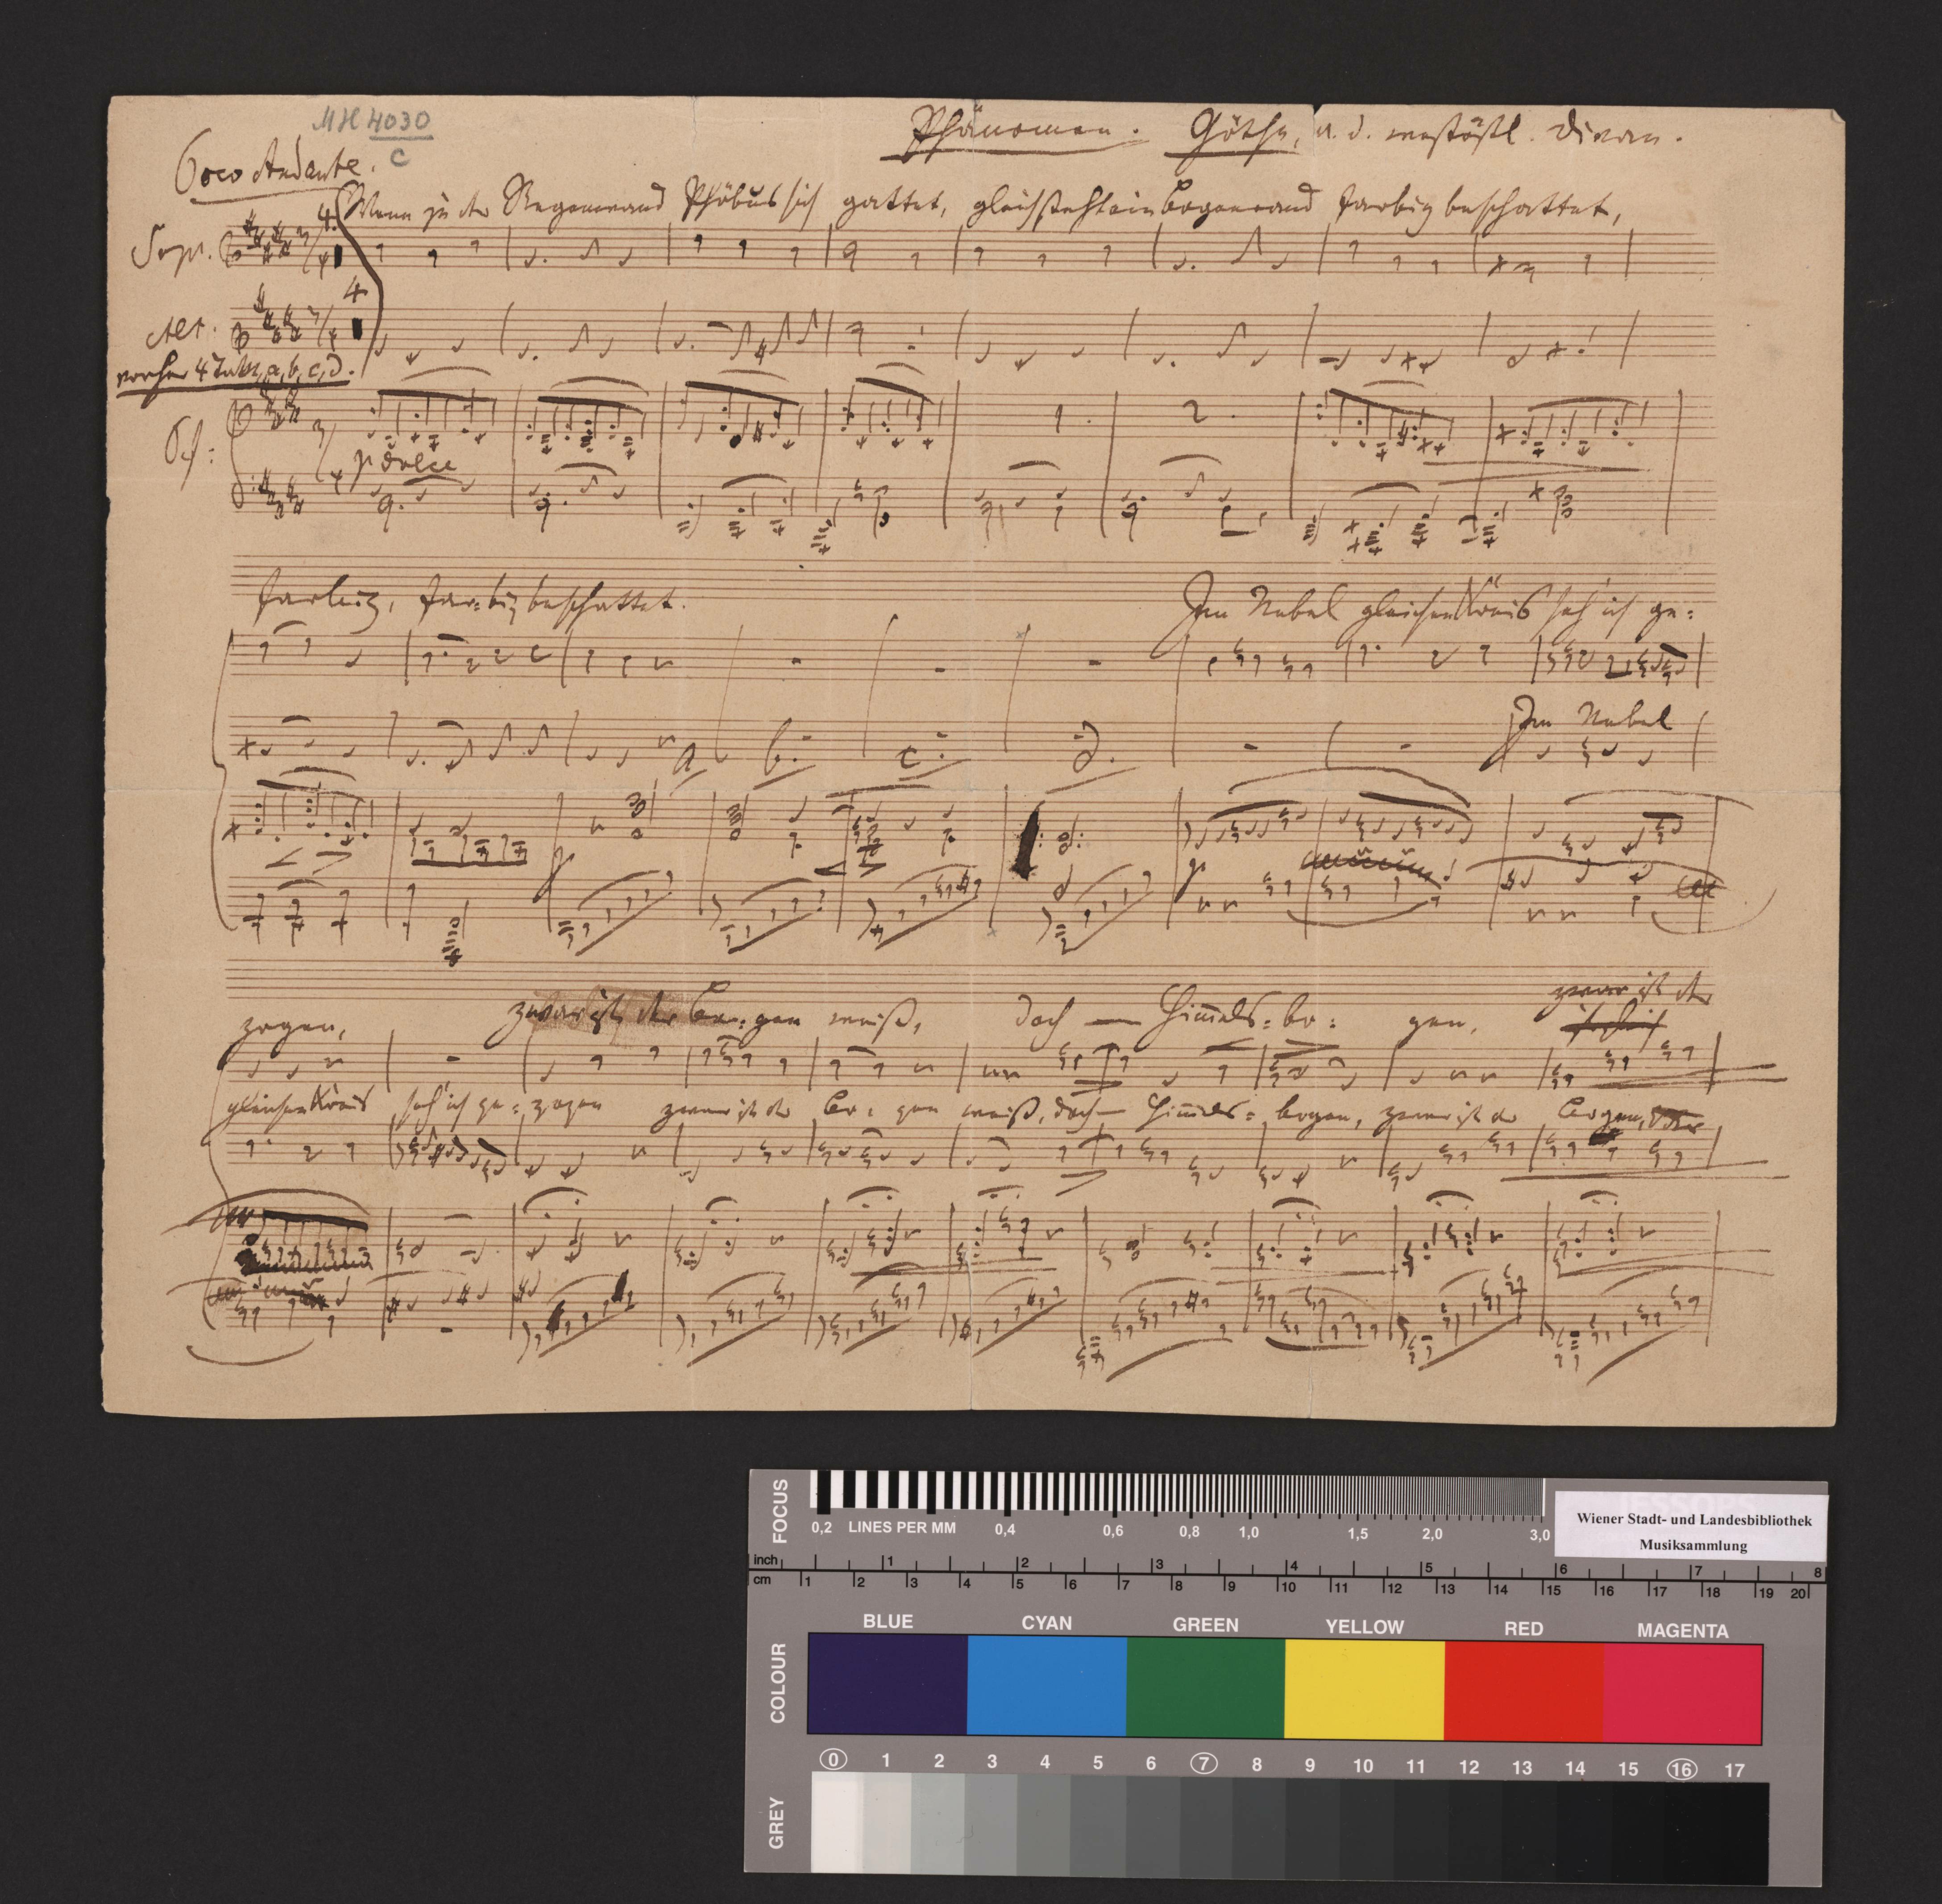 MH 4030
c
Phänomen. Göthe, a. d. westöstl. Divan.
Poco Andante.
Wenn zu der Regenwand Phöbus sich gattet, gleich steht ein Bogenrand farbig beschattet,
Sopr.
4
Alt.
4
vorher 4 Takte, a, b, c, d.
Pf:
p dolce
farbig, far=big beschattet.
Im Nebel gleichen Kreis seh' ich ge=
Im Nebel
a b. c. d.
p
p
zogen,
zwar ist der Bo=gen weiß, doch — Himels=bo=gen,
zwar ist der
gleichen Kreis seh' ich ge=zogen zwar ist der Bo=gen weiß, doch — Himels=bogen, zwar ist der Bogen,
FOCUS
0,2 LINES PER MM 0,4 0,6 0,8 1,0 1,5 2,0 3,0
JESSOPS
Wiener Stadt- und Landesbibliothek
Musiksammlung
inch 1 2 3 4 5 6 7 8
cm 1 2 3 4 5 6 7 8 9 10 11 12 13 14 15 16 17 18 19 20
COLOUR
BLUE CYAN GREEN YELLOW RED MAGENTA
0 1 2 3 4 5 6 7 8 9 10 11 12 13 14 15 16 17
GREY